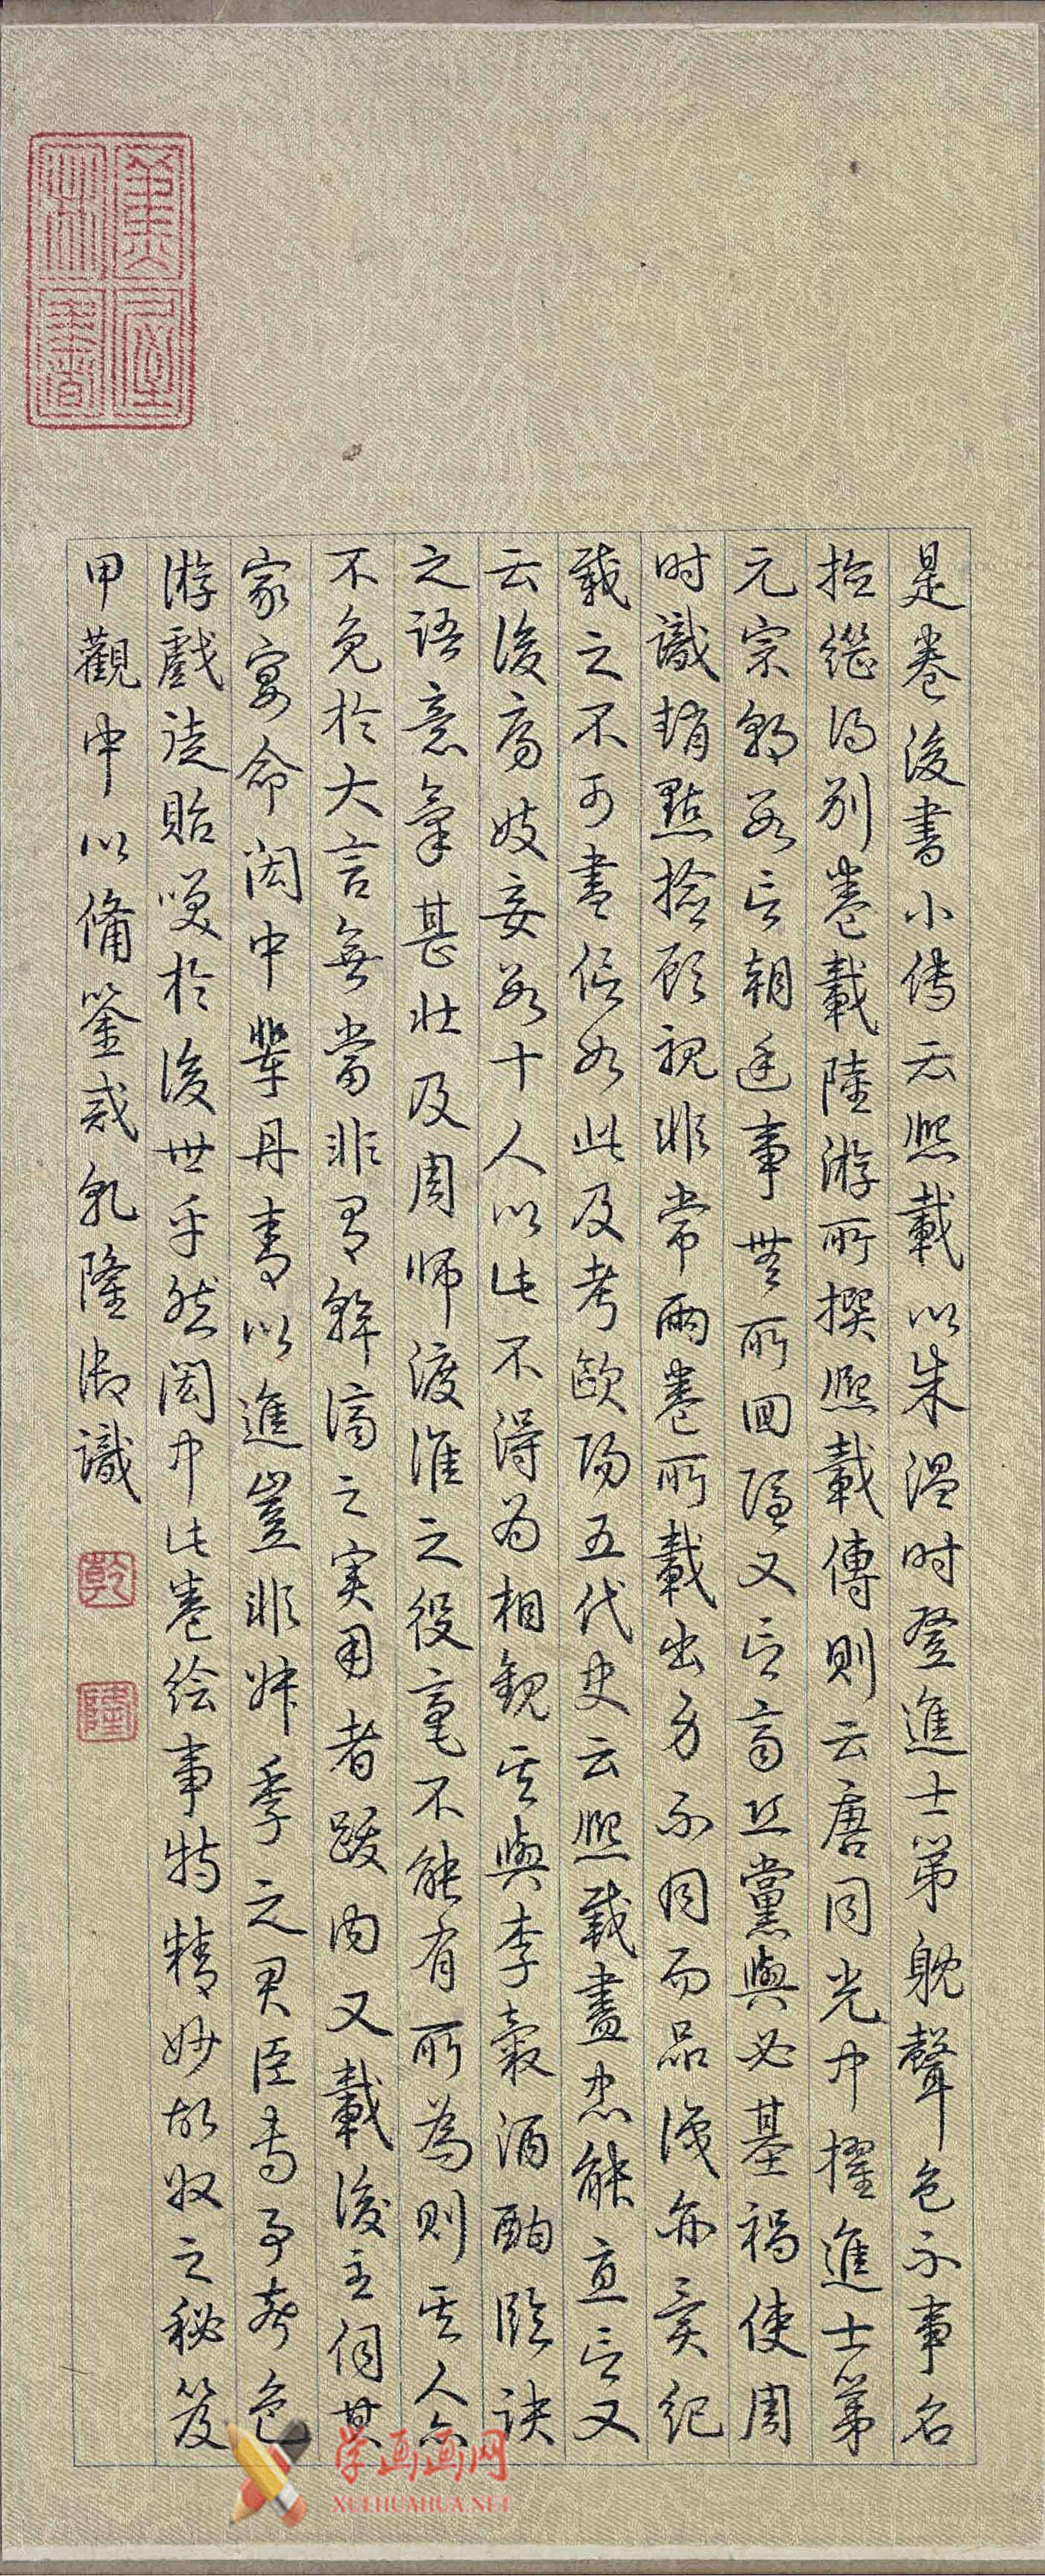 是卷後書小傳云熙載以朱温時登進士第躭聲色不事名
撿繼得别卷載陸游所撰熙載傳則云唐同光中擢進士第
元宗朝數言朝廷事無所回隱又言齊丘黨與必基禍使周
时識趙點撿顧視非常兩卷所載出身不同而品識亦異紀
載之不可盡信如此及考歐陽五代史云熙載盡忠能直言又
云後房妓妾數十人以此不得為相觀其與李榖酒酣臨訣
之語意氣甚壯及周師渡淮之役毫不能有所為則其人亦
不免於大言無當非有幹濟之实用者跋内又載後主伺其
家宴命閎中輩丹青以進豈非叔季之君臣専事声色
游戲徒貽笑於後世乎然閎中此卷绘事特精妙故收之秘笈
甲觀中以備鉴戒乹隆御識
乾
隆
畫禁
學画画网
XUEHUAHUA.NET